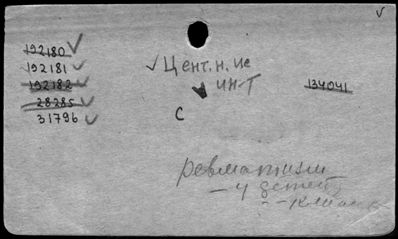 192180
192181
192182
28285
31796
Цент. н. ис
ин-т
134041
С
ревматизм
- у детей